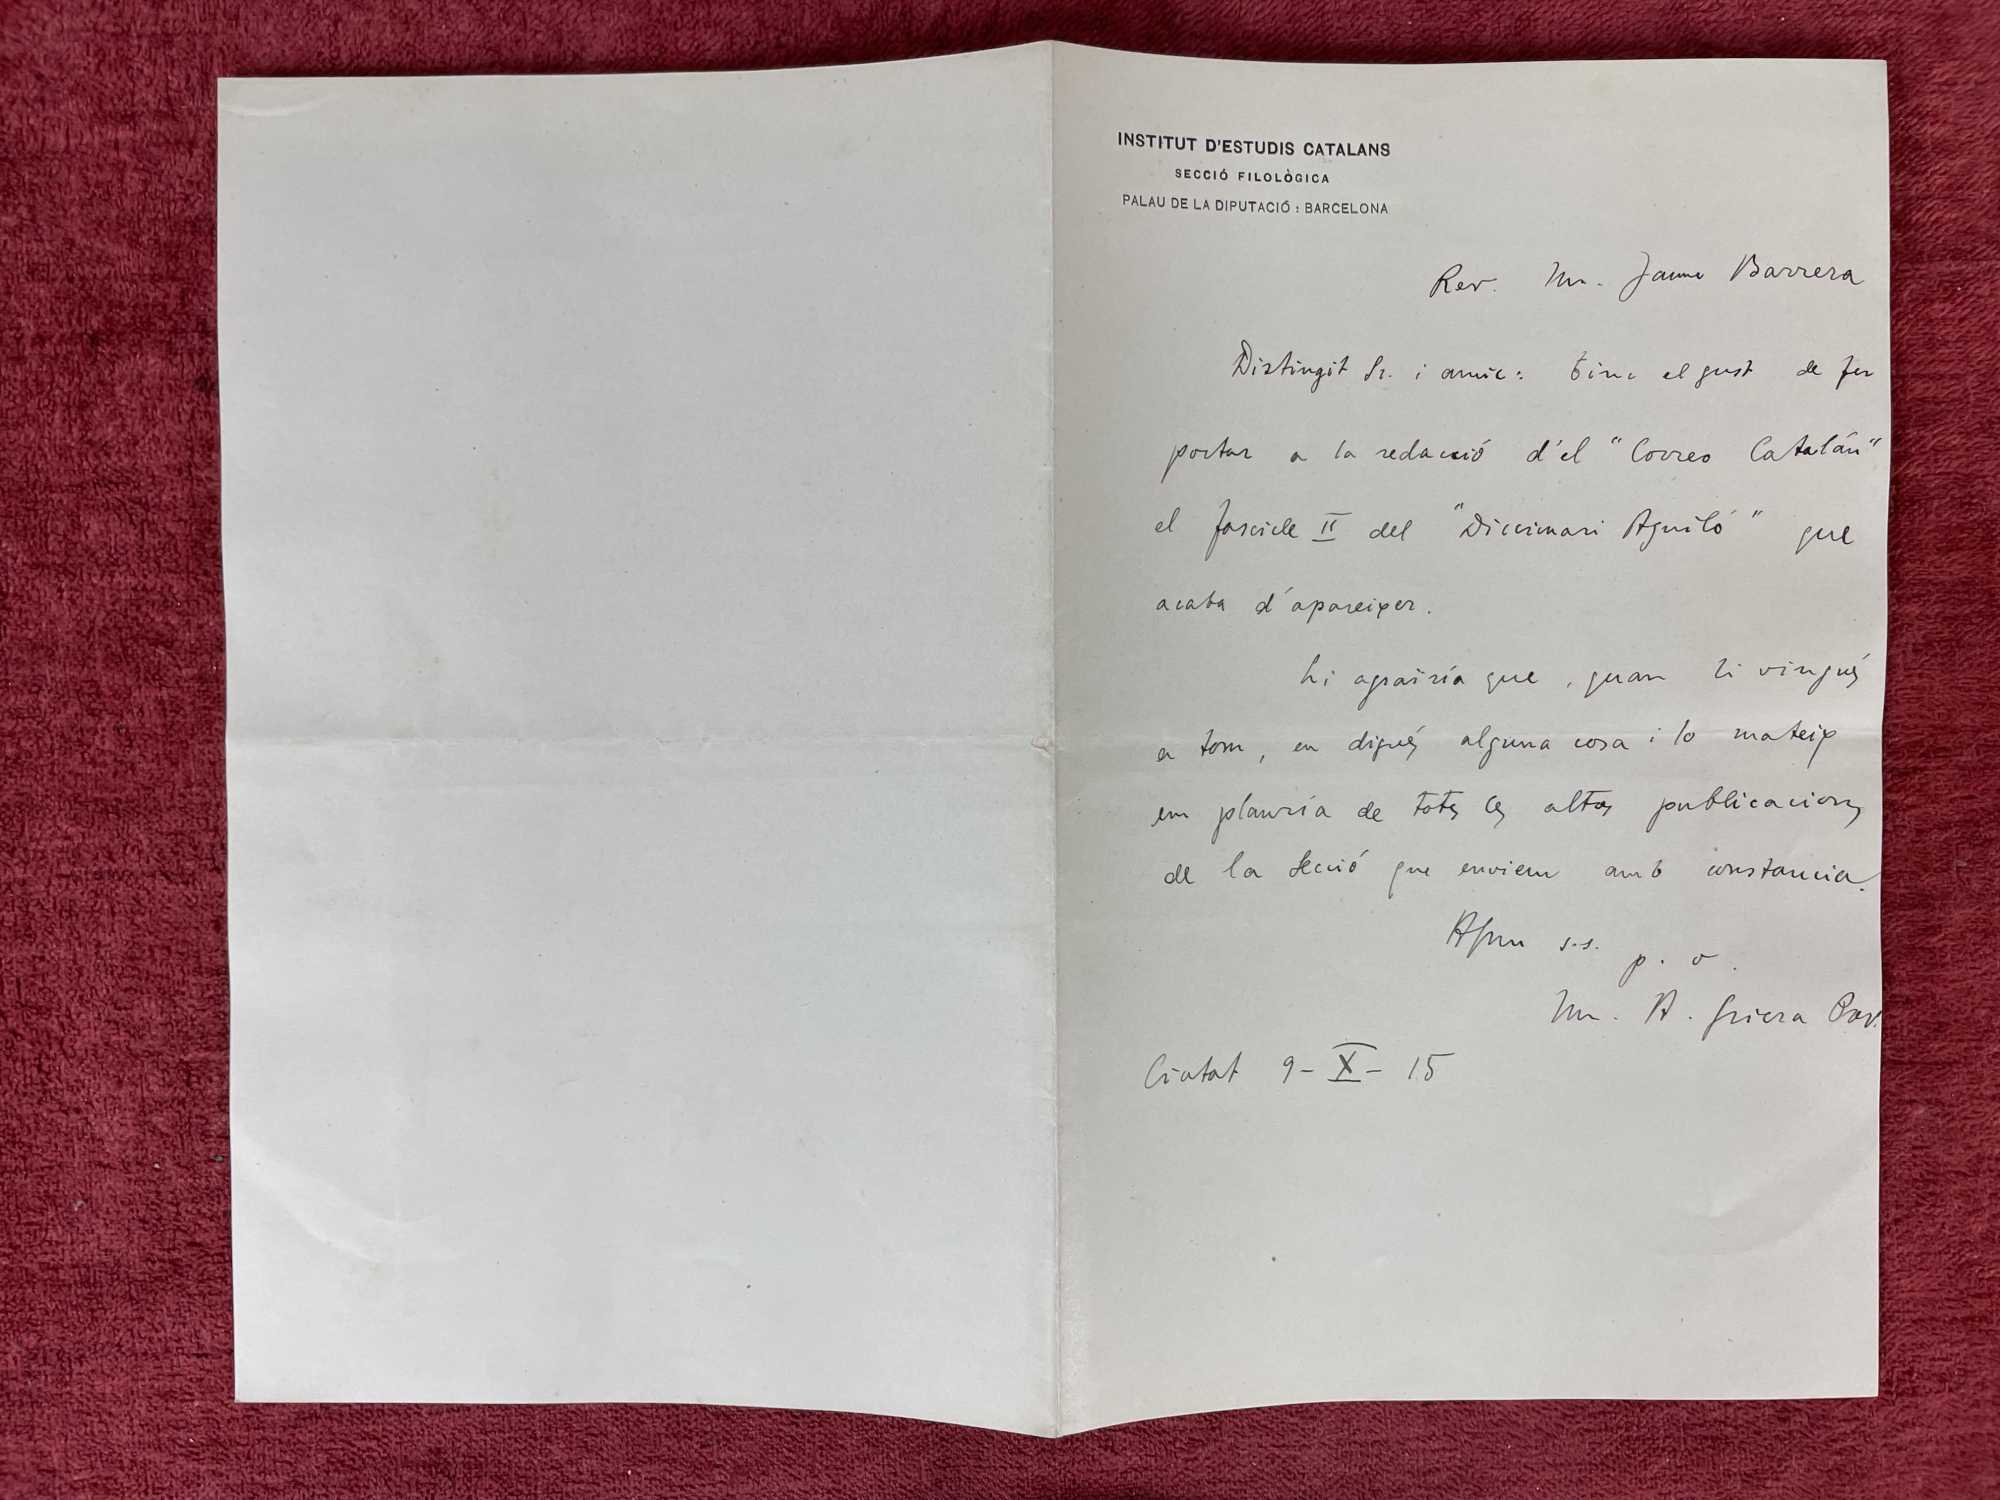 INSTITUT D'ESTUDIS CATALANS
SECCIÓ FILOLÒGICA
PALAU DE LA DIPUTACIÓ : BARCELONA
Rev. Mn. Jaume Barrera
Distingit Sr. i amic: tinc el gust de fer
portar a la redacció d'el "Correo Catalán"
el fascicle II del "Diccionari Aguiló" que
acaba d'apareixer.
Li agrairía que, quan li vingués
a tom, en digués alguna cosa i lo mateix
em plauría de totes les altres publicacions
de la Secció que enviem amb constancia.
Afm s.s.
p. o.
Mn. A. Griera Pbr.
Ciutat 9-X-15